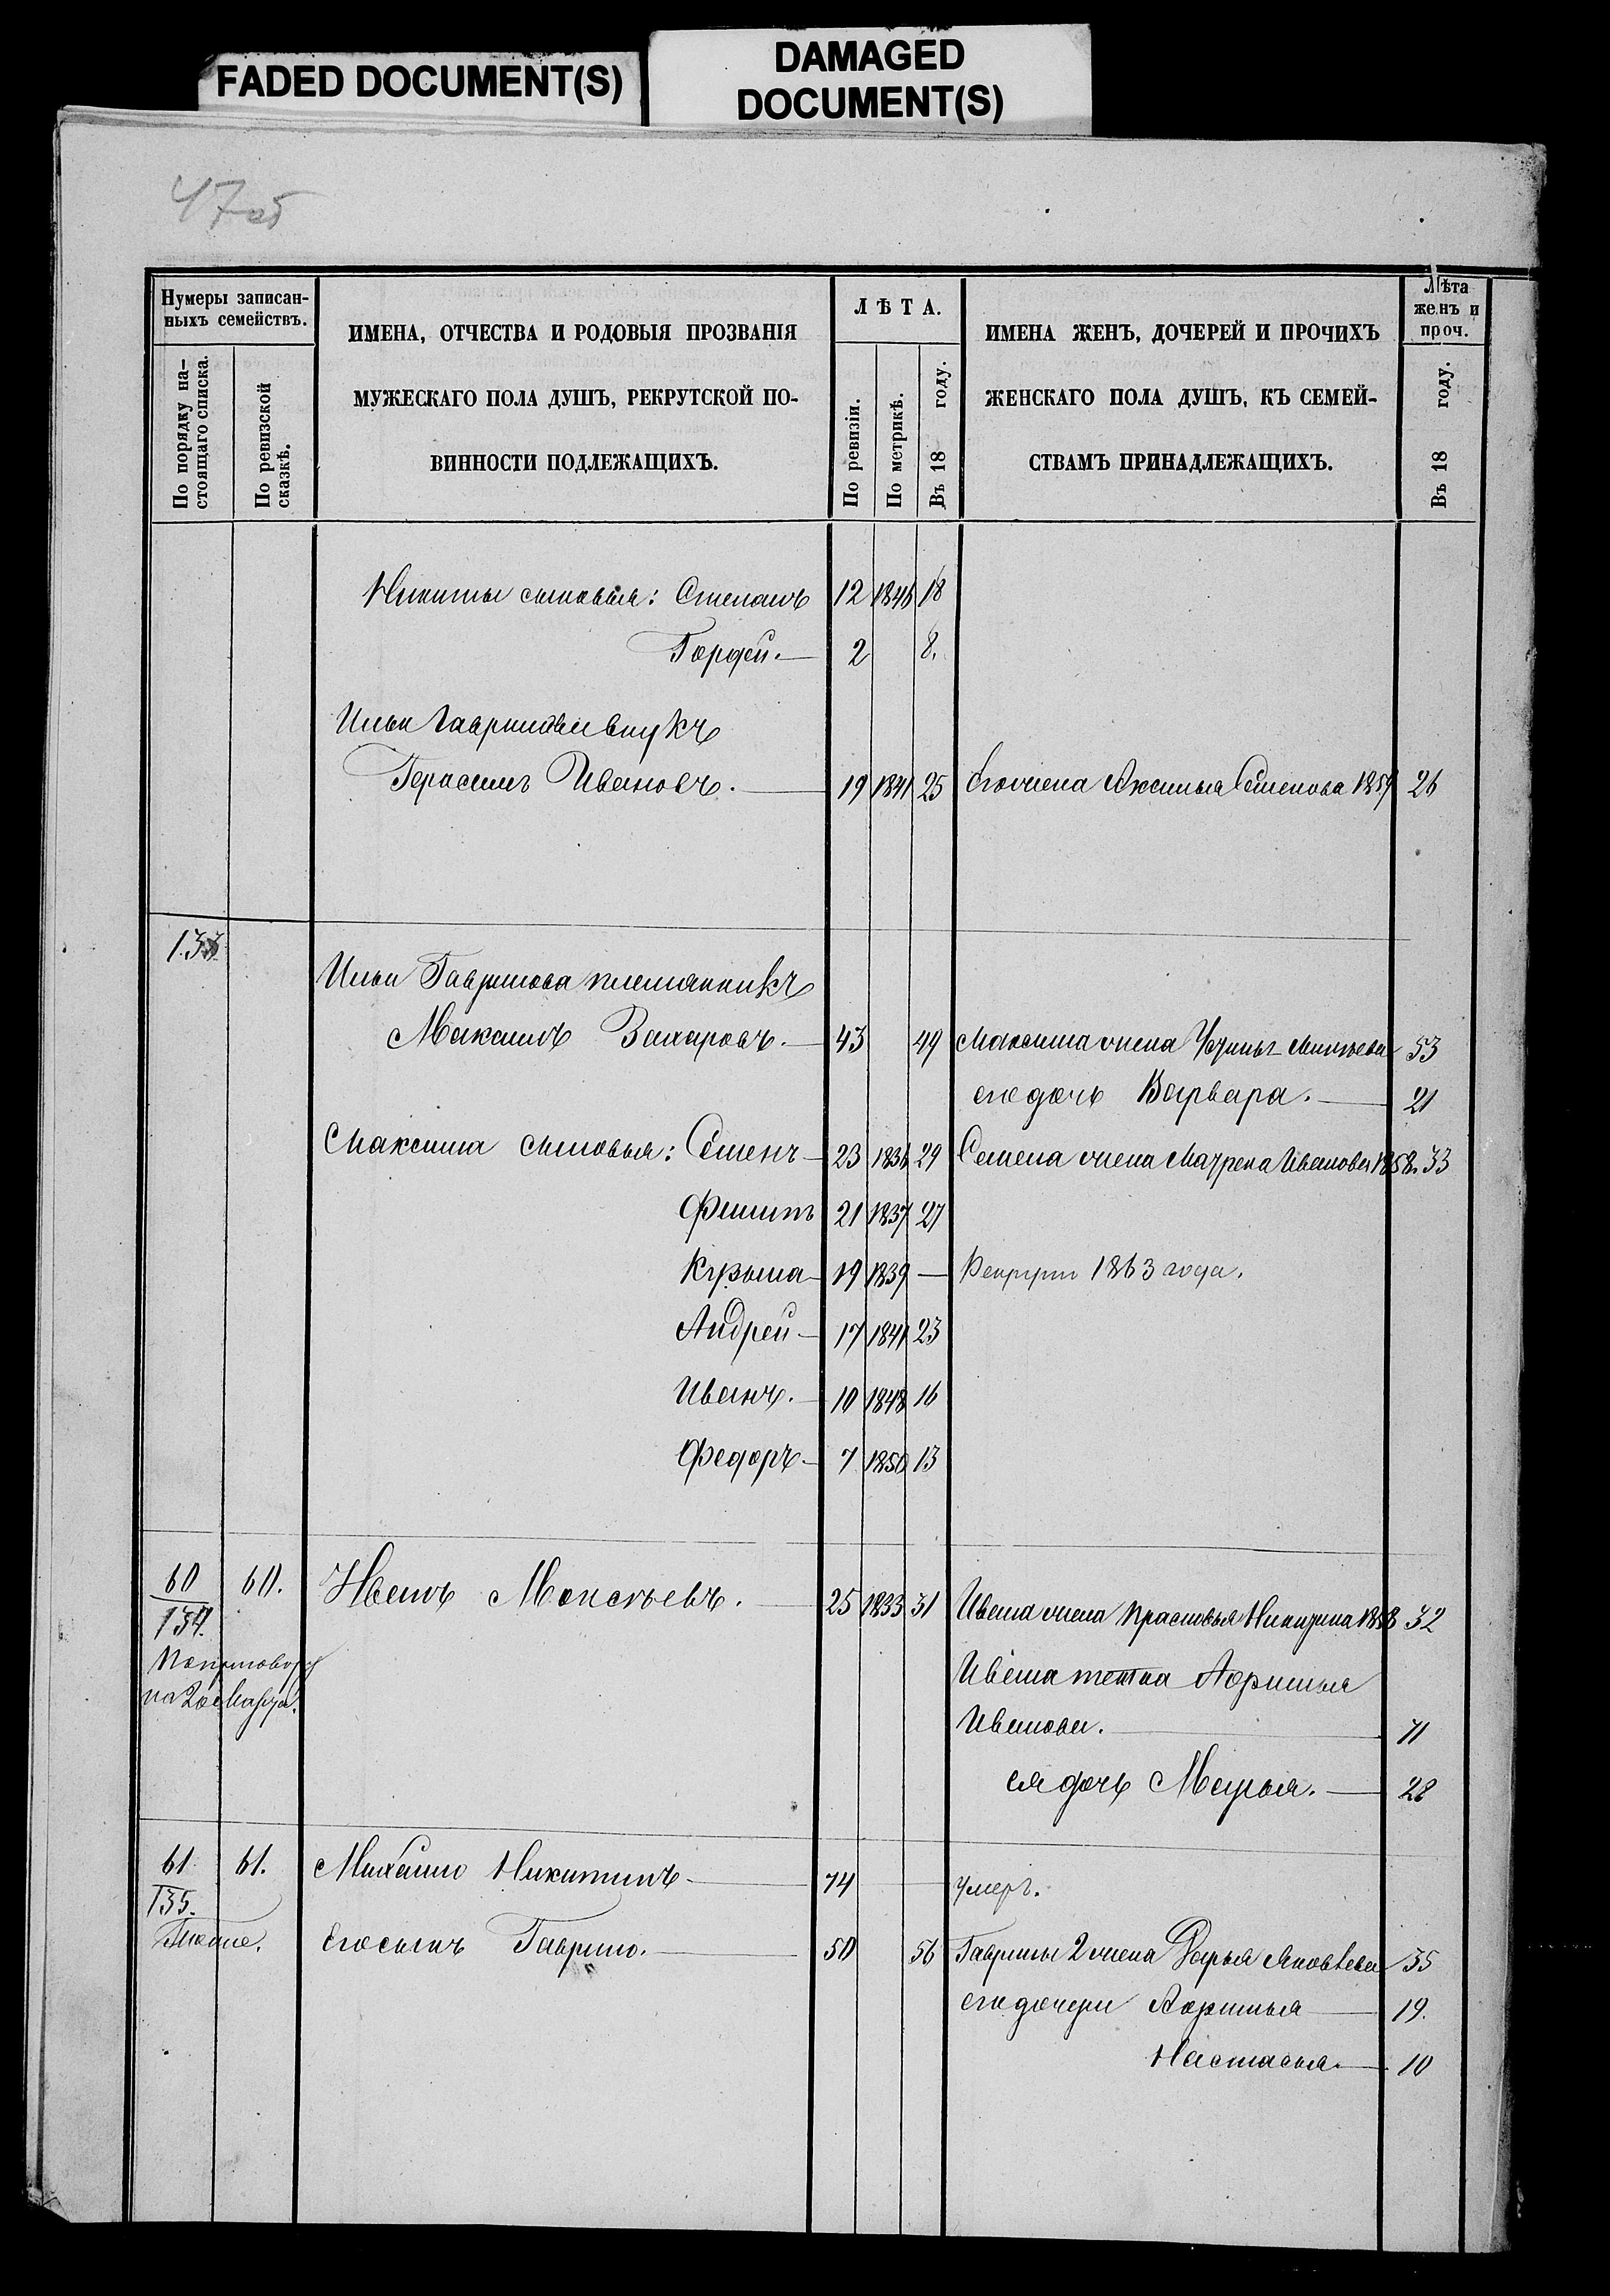 FADED DOCUMENT(S)
DAMAGED
DOCUMENT(S)
47об
Нумеры записан-
ныхъ семействъ.
По порядку на-
стоящаго списка.
По ревизской
сказкѣ.
ИМЕНА, ОТЧЕСТВА И РОДОВЫЯ ПРОЗВАНІЯ
МУЖЕСКАГО ПОЛА ДУШЪ, РЕКРУТСКОЙ ПО-
ВИННОСТИ ПОДЛЕЖАЩИХЪ.
ЛѢТА.
По ревизіи.
По метрикѣ.
Въ 18 году.
ИМЕНА ЖЕНЪ, ДОЧЕРЕЙ И ПРОЧИХЪ
ЖЕНСКАГО ПОЛА ДУШЪ, КЪ СЕМЕЙ-
СТВАМЪ ПРИНАДЛЕЖАЩИХЪ.
Лѣта
женъ и
проч.
Въ 18 году.
Никиты сыновья: Степанъ 12 1846 18
Гордей. 2 8.
Ильи Гаврилова внукъ
Герасимъ Ивановъ. 19 1841 25 Его жена Аксинья Семенова 1859 26
133
Ильи Гаврилова племянникъ
Максимъ Захаровъ. 43 49 Максима жена 53
его дочь Варвара. 21
Максима сыновья: Семенъ 23 1836 29 Семена жена Матрена Иванова 1858. 33
Филипъ 21 1837 27
Кузьма 19 1839 — Рекрутъ 1863 года.
Андрей 17 1841 23
Иванъ. 10 1848 16
Федоръ 7 1850 13
60 60. Иванъ Моисѣевъ. 25 1833 31 Ивана жена Прасковья 1858 32
134.
Ивана тетка Афринья
на 20е Марта.
Иванова. 71
ея дочь Марья. 28
61 61. Михайло Никитинъ 74 умеръ.
135.
Тоже. Его сынъ Гаврило. 50 56 Гаврилы 2 жена Дарья Яковлева 35
его дочери Афринья 19.
Настасья. 10